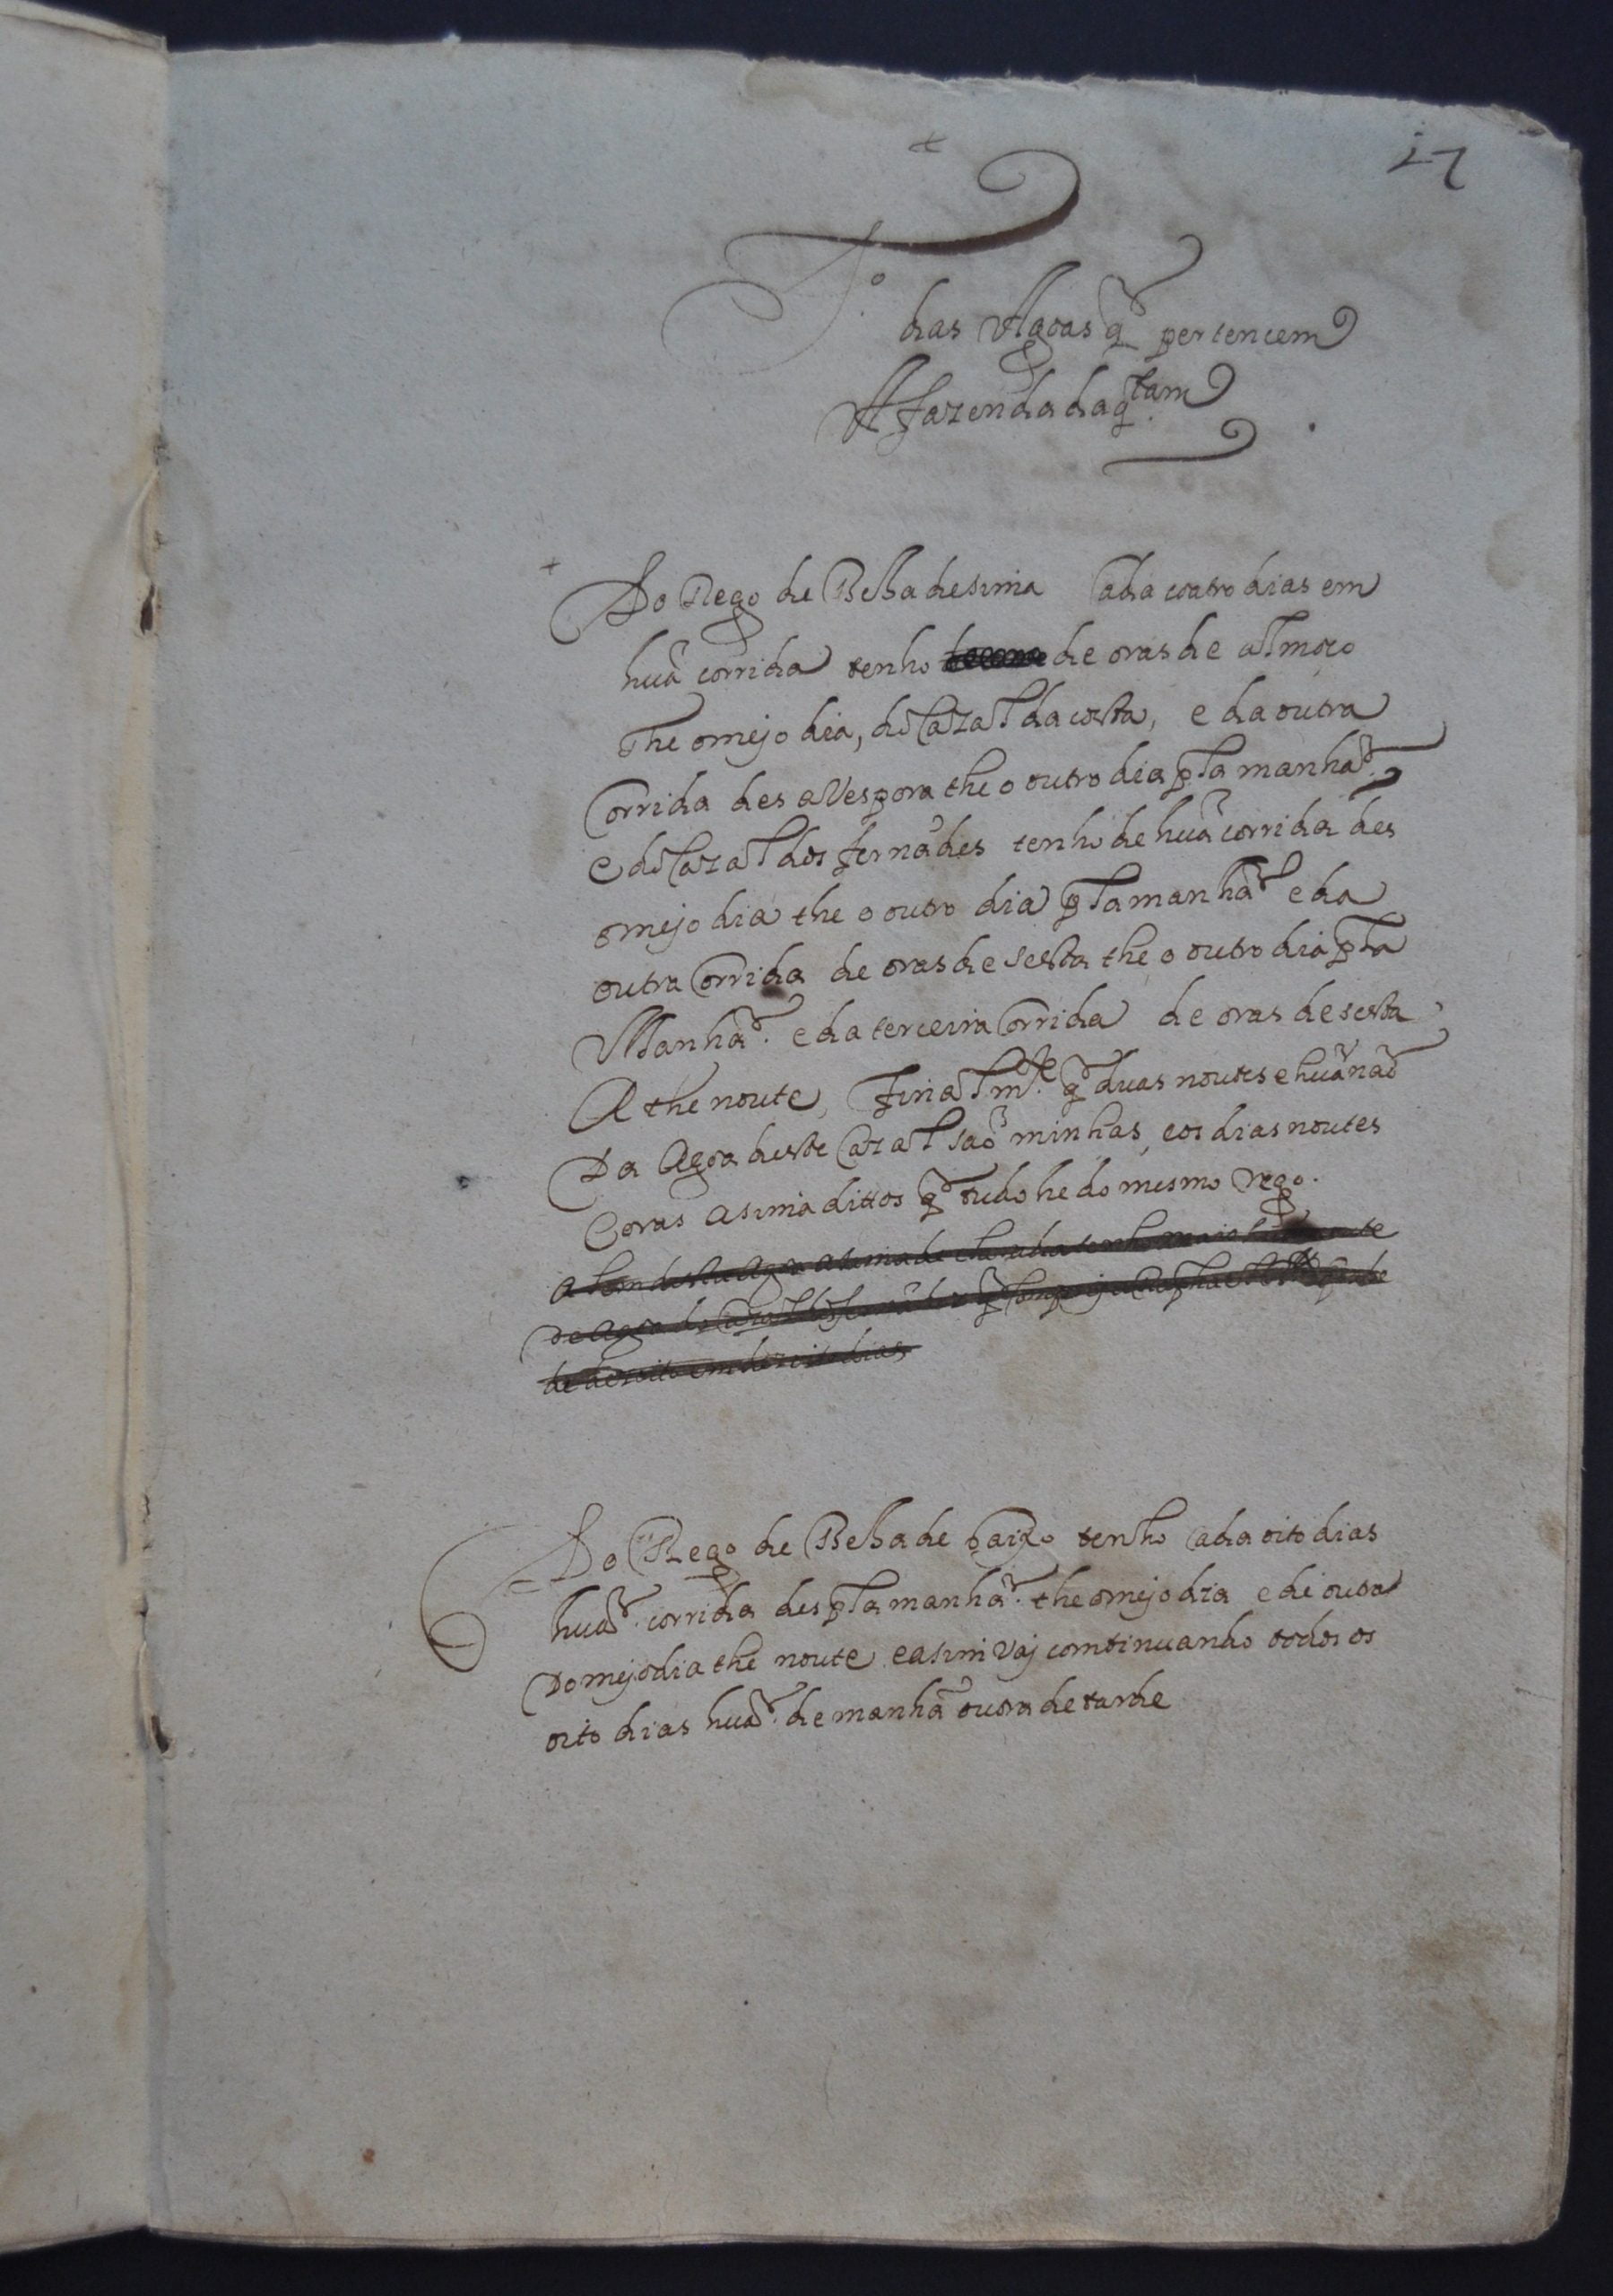 17
T.º
das Agoas q̃ pertencem
A fazenda da q.tam
Do Rego de Belha desima Cada coatro dias em
huã corrida tenho de oras de almoco
the omejo dia, do Cazal da costa, e da outra
Corrida des a Vespora the o outro dia pla manhã.
e do Cazal dos fernãdes tenho de huã corrida des
omejo dia the o outro dia pla manhã e da
outra Corrida de oras de sesta the o outro dia pla
Manhã. e da terceira Corrida de oras de sesta
A the noute, finalm.te q̃ duas noutes e huã naõ
Da Agoa deste Cazal saõ minhas, e os dias noutes
E oras asima dittos q̃ tudo he do mesmo rego.
Alem desta Agoa asima de
De Agoa do Cazal dos fernãdes q̃
de dezoito em dezoito dias
Do Rego de Belha de baixo tenho Cada oito dias
huã. corrida des pla manhã. the omejo dia e de outra
Do mejo dia the noute e asim vaj continuando todos os
oito dias huã. de manhã outra de tarde